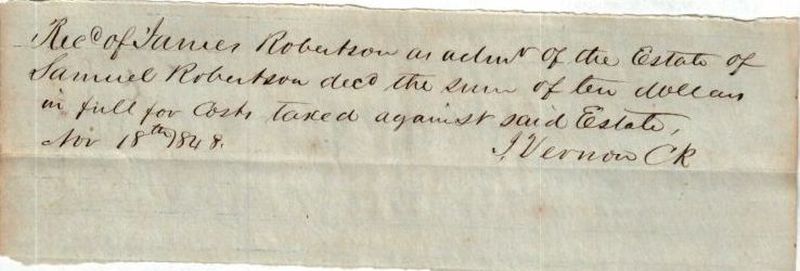 Recd of James Robertson as admr of the Estate of
Samuel Robertson decd the sum of ten dollars
in full for Costs taxed against said Estate,
Nov 18th 1848. J Vernon Ck